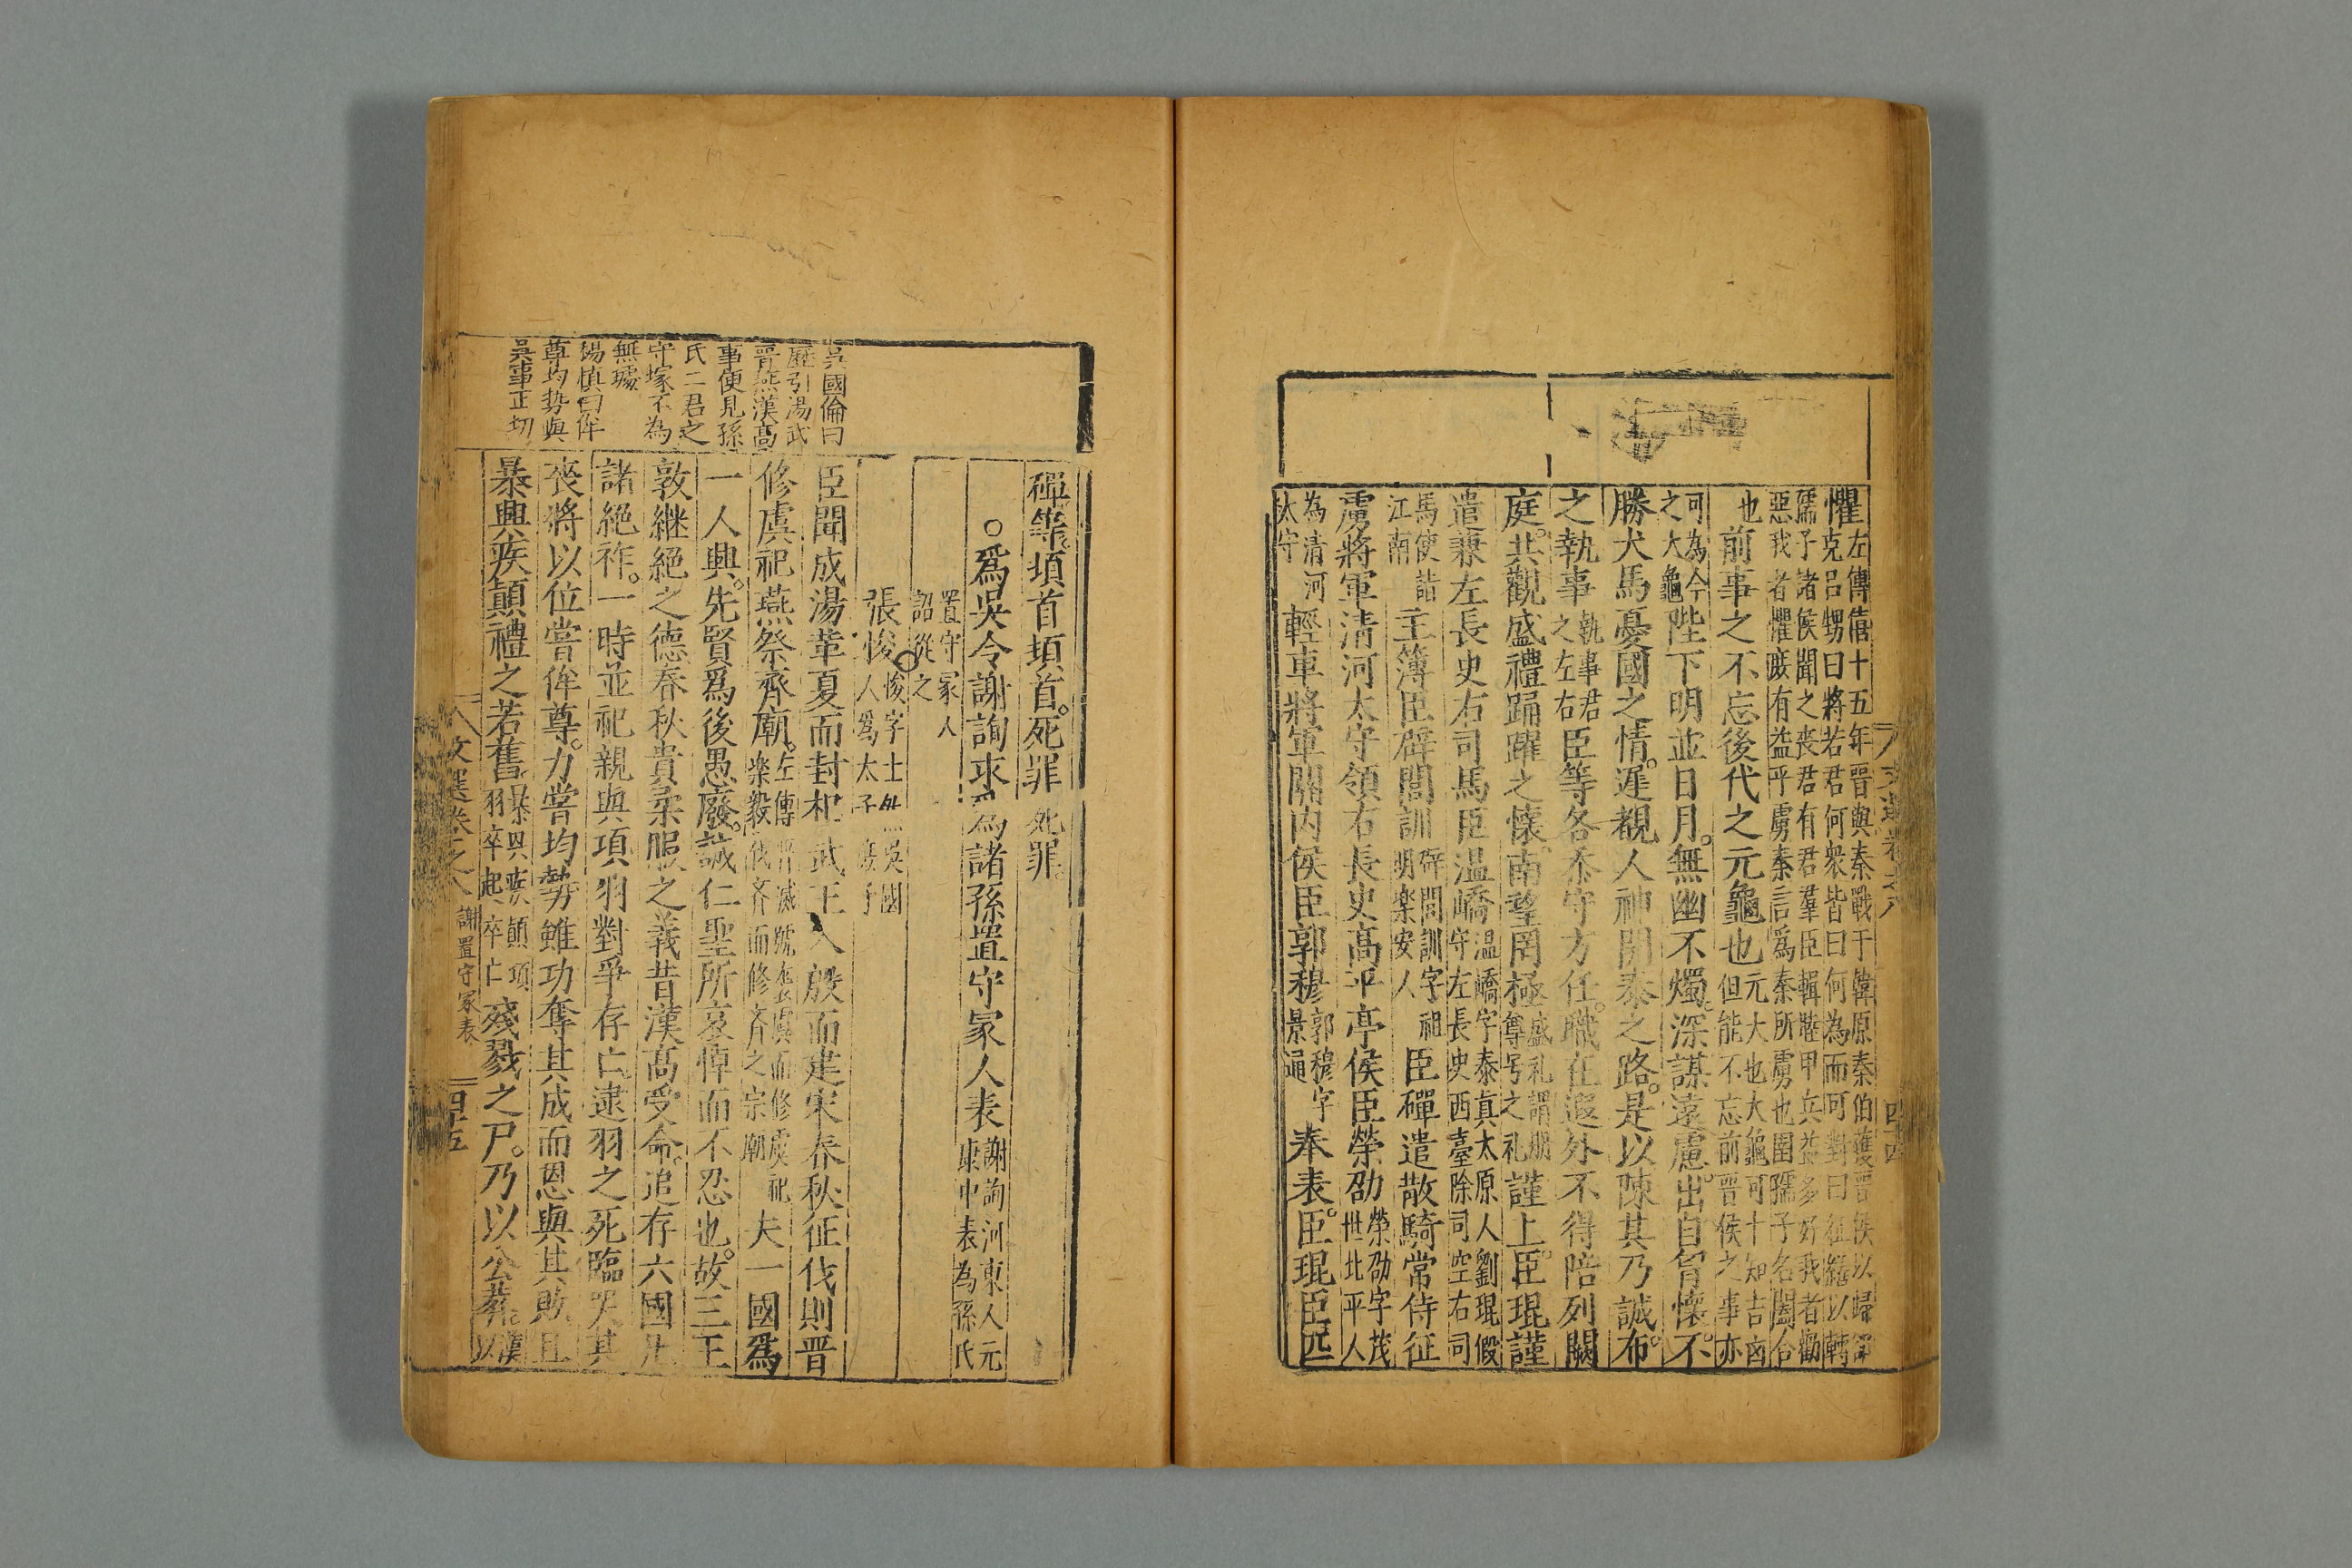 懼左傳僖十五年晋與秦戰于韓原秦伯獲晋侯以歸
克呂甥曰將若君何衆皆曰何為而可對曰征繕以輔
孺子諸侯聞之喪君有君羣臣輯睦甲兵益多好我者勸
惡我者懼庶有益乎虜秦言爲秦所虜也圉孺子名闔合
也前事之不忘後代之元龜也元大也大龜可十知吉凶
但能不忘前晋侯之事亦
可為今
之大龜陛下明並日月。無幽不燭。深謀遠慮。出自胷懷。不
勝犬馬憂國之情。遲覩人神開泰之路。是以陳其乃誠。布
之執事執事君
之左右臣等各忝守方任。職在遐外不得陪列闕
庭。共觀盛禮踊躍之懷。南望罔極盛礼謂册
尊号之礼謹上。臣琨謹
遣兼左長史右司馬臣温嶠温嶠字泰真太原人劉琨假
守左長史西臺除司空右司
馬使詣
江南主簿臣辟閭訓辟閭訓字祖
明樂安人臣磾遣散騎常侍征
虜將軍清河太守領右長史高平亭侯臣榮劭榮劭字茂
世北平人
為清河
太守輕車將軍關內侯臣郭穆郭穆字
景通奉表。臣琨臣匹
磾等頓首頓首。死罪死罪。
○爲吳令謝詢求為諸孫置守冢人表謝詢河東人元
康中表為孫氏
置守冢人
詔從之
張悛悛字士然吳國
人爲太子庶子
臣聞成湯革夏而封杞武王入殷而建宋春秋征伐則晋
修虞祀燕祭齊廟。左傳晋滅虢襲虞而修虞祀
樂毅伐齐而修齐之宗廟夫一國爲
一人興。先賢爲後愚廢。誠仁聖所哀悼而不忍也。故三王
敦継絕之德春秋貴柔服之義昔漢高受命。追存六國凡
諸絕祚。一時並祀親與項羽對爭存亡逮羽之死臨哭其
喪將以位嘗侔尊。力嘗均勢雖功奪其成而恩與其敗且
暴興疾顛禮之若舊暴興疾顛項
羽卒起卒亡殘戮之尸。乃以公葬。漢
以
吳國倫曰
歷引湯武
晋燕漢高
事便見孫
氏二君之
守塚不為
無據
楊慎曰侔
尊均势與
吳事正切
文選卷之八 謝置守冢表 四十五